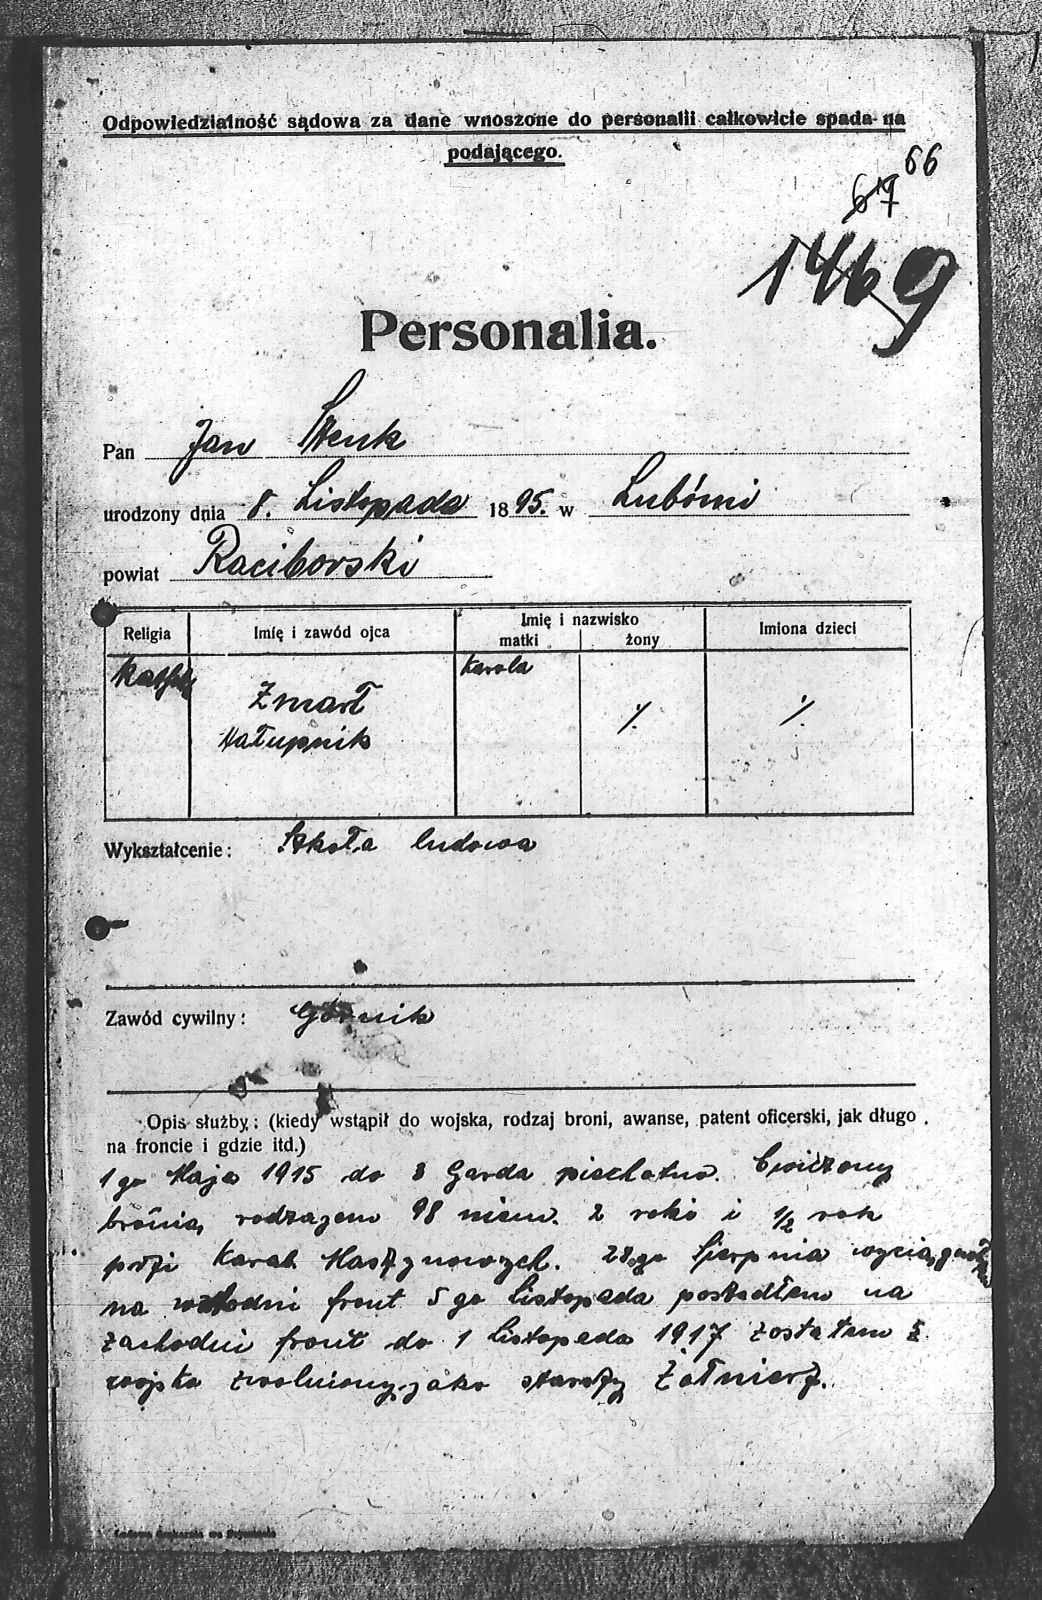 Odpowiedzialność sądowa za dane wnoszone do personalii całkowicie spada na
podającego.
66
67
1469
Personalia.
Pan Jan
urodzony dnia 8. Listopada 1895. w Lubómi
powiat Raciborski
Religia Imię i zawód ojca Imię i nazwisko matki żony Imiona dzieci
Karola
Zmarł ./. ./.
Hałupnik
Wykształcenie: Szkoła ludowa
Zawód cywilny: Górnik
Opis służby: (kiedy wstąpił do wojska, rodzaj broni, awanse, patent oficerski, jak długo
na froncie i gdzie itd.)
1 go Maja 1915 do 3 Garda piechotno. Cwiczony
brónią rodzajem 98 niem. 2 roki i 1/2 rok
przi Karab Maszynowych. 28.go Sierpnia
na front 5 go Listopada poszedłem na
zachodni front do 1 Listopada 1917 zostałem z
wojska zwolniony jako starszy Żołnierz.